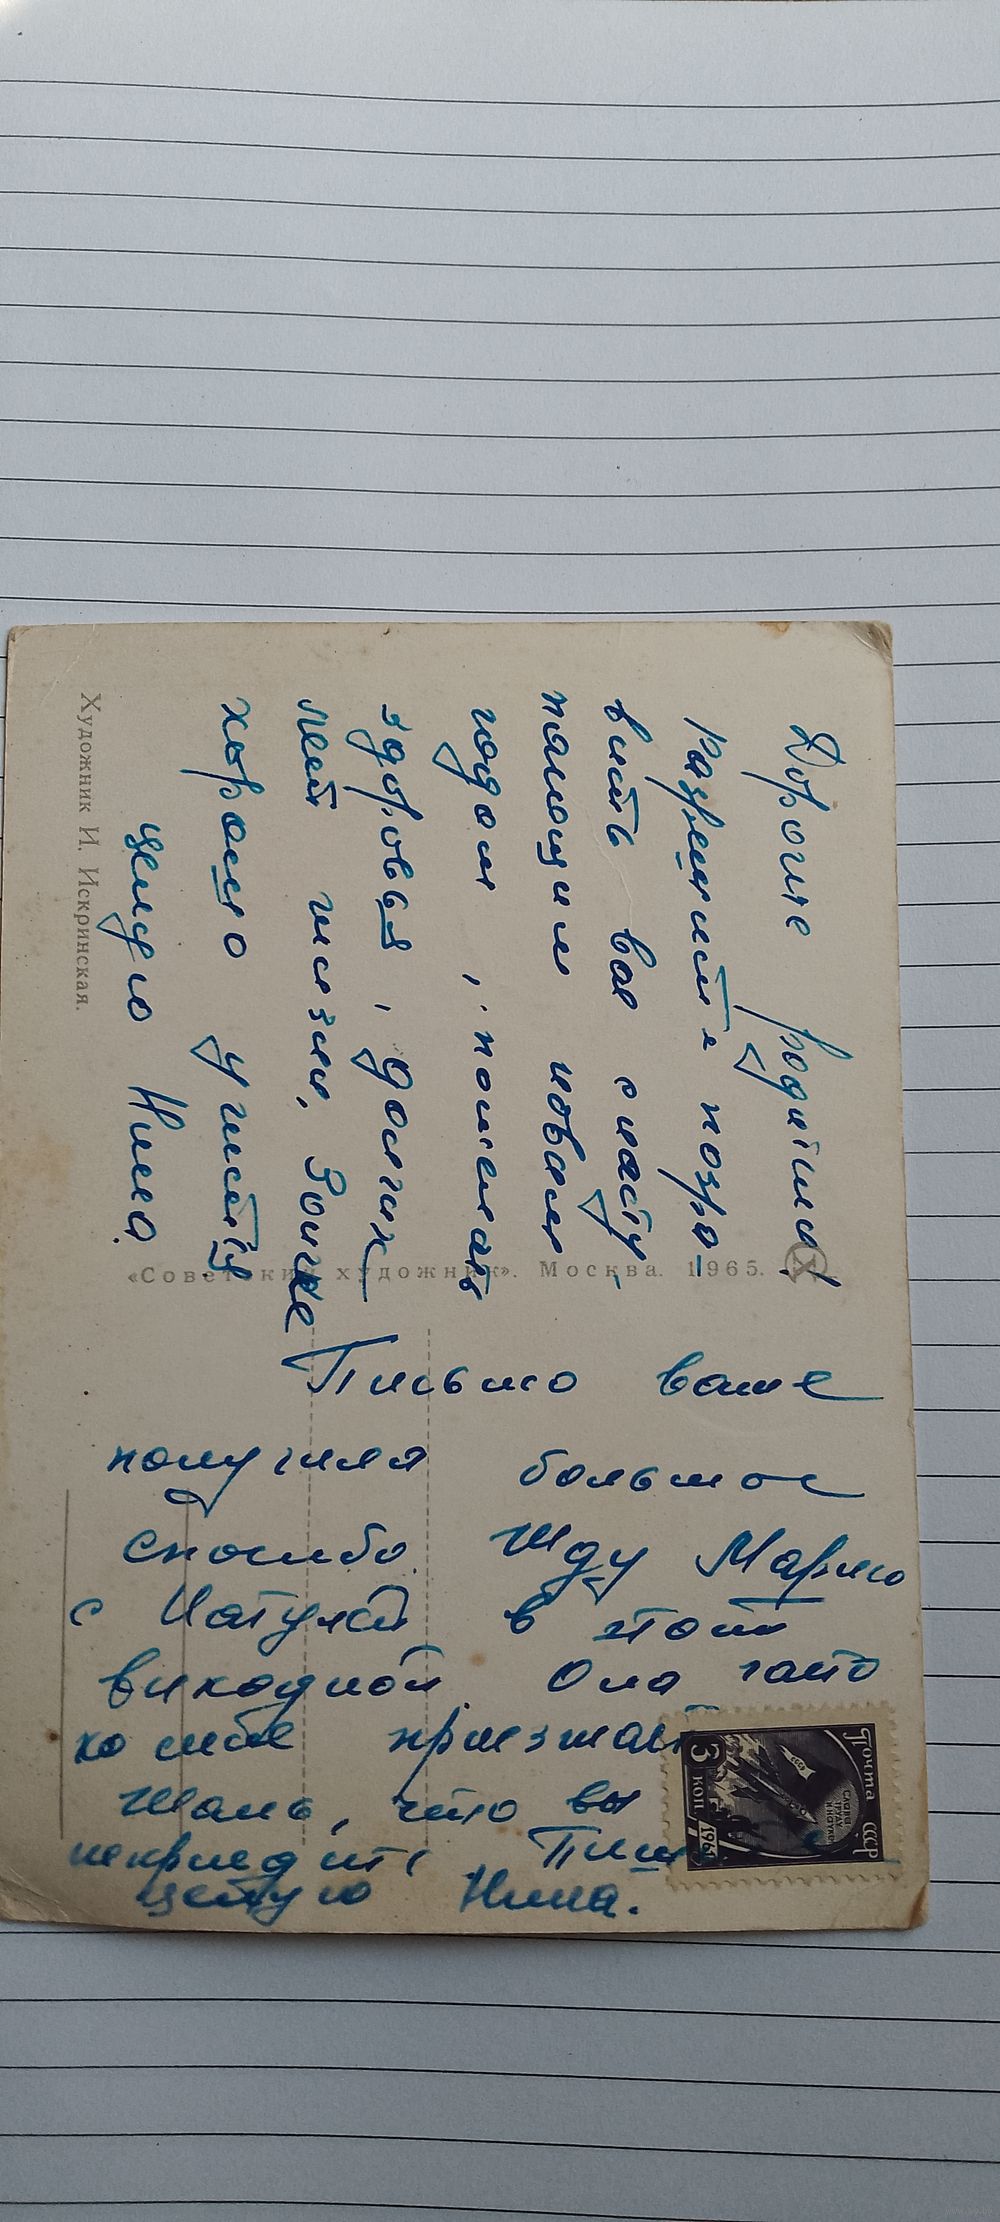 Дорогие родители!
Разрешите позра-
вить вас с насту-
пающим новым
годом, пожелать
здоровья, долгих
лет жизни. Зоичке
хорошо учиться
целую Нина.
Художник И. Искринская.
«Советский художник». Москва. 1965.
Письмо ваше
получила большое
спасибо. Жду Марию
с Натулей в этот
выходной. Она часто
ко мне приезжает
Жаль, что вы
неприедите Пишите
целую Нина.
Почта СССР
СЛАВА
ТРУДУ
И НАУКЕ
3 коп
1961